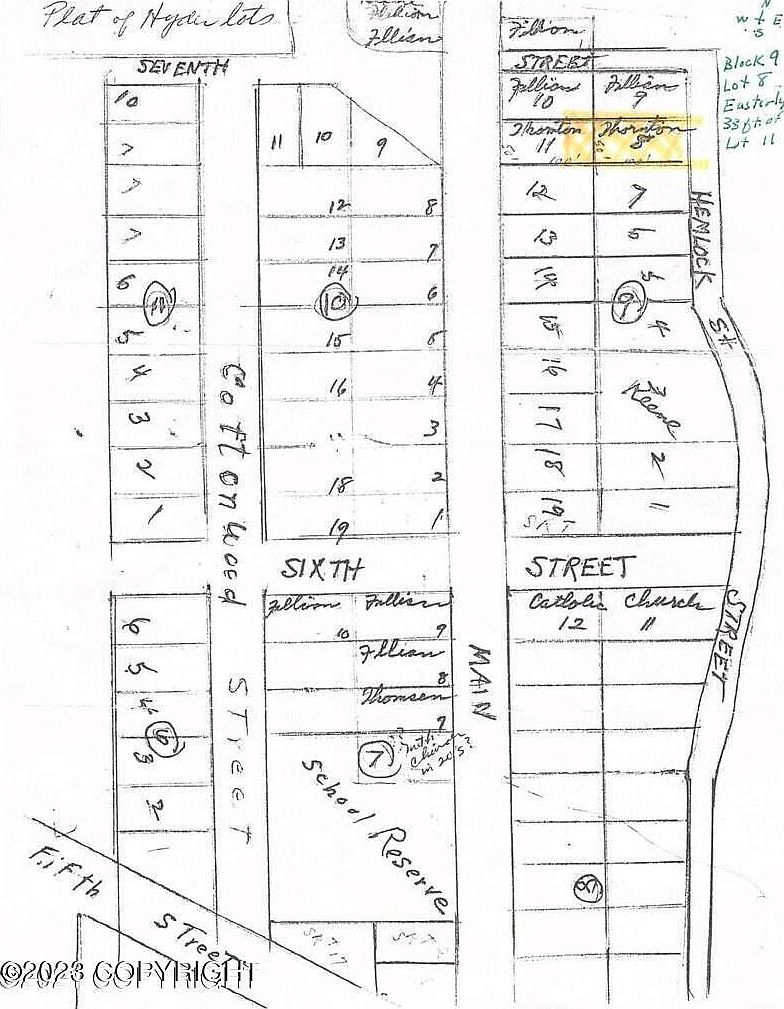 Plat of Hyder lots
Fillian
Fillian
Fillian
N
W + E
S
SEVENTH
STREET
Block 9
Lot 8
Easterly
33 ft of
Lot 11
Fillian
10
Fillian
9
Thornton
11
Thornton
8
10
7
7
7
6
11
5
4
3
2
1
11
10
9
12
8
13
7
14
10
6
15
5
16
4
3
18
2
19
1
12
7
13
6
14
5
9
15
4
16
3
Keene
17
18
2
19
1
SKT
HEMLOCK
St
Cottonwood
STreeT
SIXTH
STREET
Fillian
10
Fillian
9
Fillian
8
Thomsen
7
Catholic Church
12
11
6
5
4
6
3
2
1
MAIN
STREET
7
Luth
Church
in 20's?
School Reserve
8
Fifth
STreeT
SKT
17
SKT
©2023 COPYRIGHT